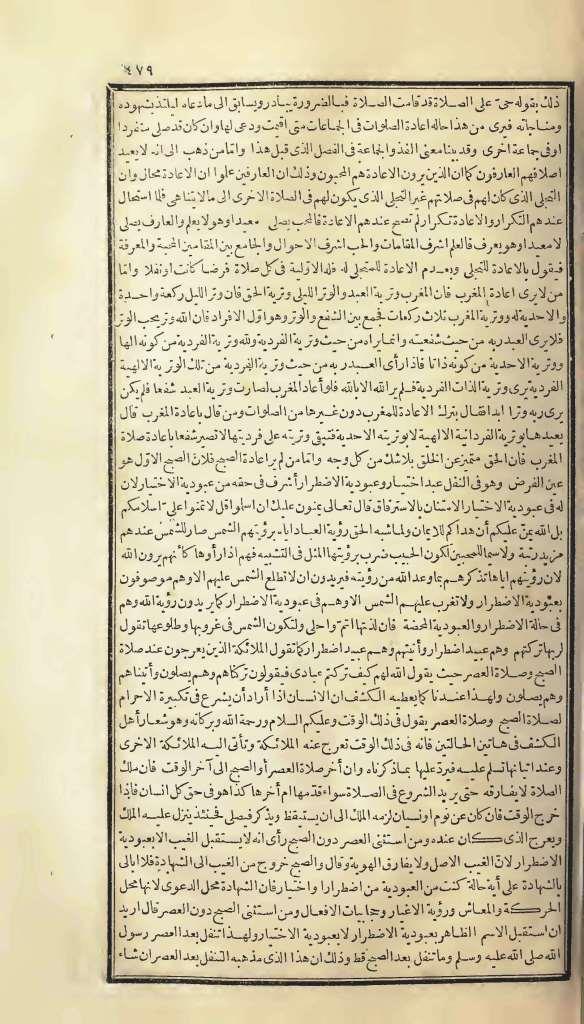 ٤٧٩
ذلك بقوله حيّ على الصلاة قد قامت الصلاة فبالضرورة يبادر ويسابق الى ما دعاه ليلتذ بشهوده
ومناجاته فيرى من هذا حاله اعادة الصلوات فى الجماعات متى أقيمت ودعى لها وان كان قد صلى منفردا
أو فى جماعة أخرى وقد بينا معنى الفذ والجماعة فى الفصل الذى قبل هذا وامّا من ذهب الى انه لا يعيد
أصلا فهم العارفون كما ان الذين يرون الاعادة هم المحبون وذلك ان العارفين علموا ان الاعادة محال وان
التجلى الذى كان لهم فى صلاتهم غير التجلى الذى يكون لهم فى الصلاة الاخرى الى ما لا يتناهى فلما استحال
عندهم التكرار والاعادة تكرار لم تصح عندهم الاعادة فالمحب يصلى معيدا وهو لا يعلم والعارف يصلى
لا معيدا وهو يعرف فالعلم أشرف المقامات والحب أشرف الاحوال والجامع بين المقامين المحبة والمعرفة
فيقول بالاعادة للتجلى وبعدم الاعادة للمتجلى له فله الاولية فى كل صلاة فرضا كانت أو نفلا وامّا
من لا يرى اعادة المغرب فان المغرب وترية العبد والوتر الليلى وترية الحق فان وتر الليل ركعة واحدة
والاحدية له ووترية المغرب ثلاث ركعات فجمع بين الشفع والوتر وهو أول الافراد فان الله وتر يحب الوتر
فلا يرى العبد ربه من حيث شفعيته وانما يراه من حيث وترية الفردية ولله وترية الفردية من كونه الها
ووترية الاحدية من كونه ذاتا فاذا رأى العبد ربه من حيث وترية الفردية من تلك الوترية الالهية
الفردية يرى وترية الذات الفردية فلم ير الله الا بالله فلو أعاد المغرب لصارت وترية العبد شفعا فلم يكن
يرى ربه وترا أبدا فقال بترك الاعادة للمغرب دون غيرها من الصلوات ومن قال باعادة المغرب قال
يعيدها بوترية الفردانية الالهية لا بوتريته الاحدية فتبقى وتريته على فرديتها لا تصير شفعا باعادة صلاة
المغرب فان الحق متميز عن الخلق بلا شك من كل وجه وامّا من لم ير اعادة الصبح فلانّ الصبح الاول هو
عين الفرض وهو فى النفل عبد اختيار وعبودية الاضطرار أشرف فى حقه من عبودية الاختيار لان
له فى عبودية الاختيار الامتنان بالاسترقاق قال تعالى يمنون عليك ان أسلموا قل لا تمنوا علىّ اسلامكم
بل الله يمنّ عليكم أن هداكم للايمان ولما شبه الحق رؤية العباد اياه برؤيتهم الشمس صار للشمس عندهم
مزيد رتبة ولا سيما للمحبين لكون الحبيب ضرب برؤيتها المثل فى التشبيه فهم اذا رأوها كأنهم يرون الله
لان رؤيتهم اياها تذكرهم بما وعد الله من رؤيته فيريدون ان لا تطلع الشمس عليهم الا وهم موصوفون
بعبودية الاضطرار ولا تغرب عليهم الشمس الا وهم فى عبودية الاضطرار كما يريدون رؤية الله وهم
فى حالة الاضطرار والعبودية المحضة فان لذتها أتمّ وأحلى ولتكون الشمس فى غروبها وطلوعها تقول
لربها تركتهم وهم عبيد اضطرار وأتيتهم وهم عبيد اضطرار كما تقول الملائكة الذين يعرجون عند صلاة
الصبح وصلاة العصر حيث يقول الله لهم كيف تركتم عبادى فيقولون تركناهم وهم يصلون وأتيناهم
وهم يصلون ولهذا عندنا كما يعطيه الكشف ان الانسان اذا أراد أن يشرع فى تكبيرة الاحرام
لصلاة الصبح وصلاة العصر يقول فى ذلك الوقت وعليكم السلام ورحمة الله وبركاته وهو شعار أهل
الكشف فى هاتين الحالتين فانه فى ذلك الوقت تعرج عنه الملائكة وتأتى اليه الملائكة الاخرى
وعند اتيانها تسلم عليه فيردّ عليها بما ذكرناه وان أخر صلاة العصر أو الصبح الى آخر الوقت فان ملك
الصلاة لا يفارقه حتى يريد الشروع فى الصلاة سواء قدّمها أم أخرها كذا هو فى حق كل انسان فاذا
خرج الوقت فان كان عن نوم أو نسيان لزمه الملك الى ان يستيقظ ويذكر فيصلى فحينئذ ينزل عليه الملك
ويعرج الذى كان عنده ومن استثنى العصر دون الصبح رأى انه لا يستقبل الغيب الا بعبودية
الاضطرار لانّ الغيب الاصل ولا يفارق الهوية وقال والصبح خروج من الغيب الى الشهادة فلا أبالى
بالشهادة على أية حالة كنت من العبودية من اضطرار او اختيار فان الشهادة محل الدعوى لانها محل
الحركة والمعاش ورؤية الاغيار وحجابيات الافعال ومن استثنى الصبح دون العصر قال أريد
ان استقبل الاسم الظاهر بعبودية الاضطرار لا بعبودية الاختيار ولهذا تنفل بعد العصر رسول
الله صلى الله عليه وسلم وما تنفل بعد الصبح قط وذلك ان هذا الذى مذهبه التنفل بعد العصر ان شاء